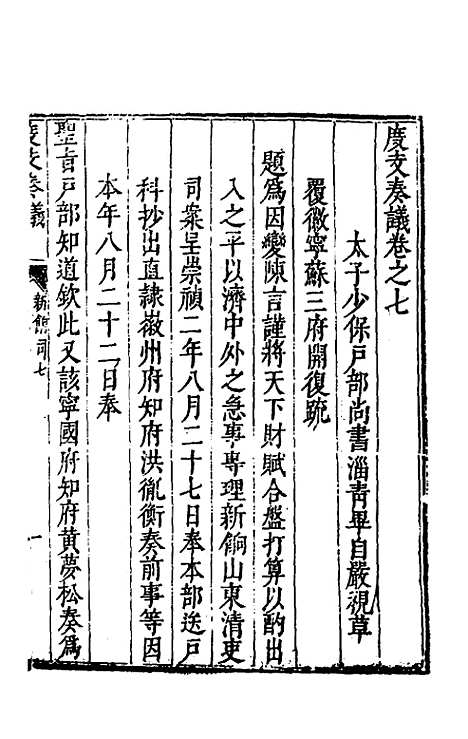 度支奏議卷之七
太子少保戶部尚書淄青畢自嚴視草
覆徽寧蘇三府開復疏
題為因變陳言謹將天下財賦合盤打算以酌出
入之平以濟中外之急事專理新餉山東清吏
司案呈崇禎二年八月二十七日奉本部送戶
科抄出直隷徽州府知府洪胤衡奏前事等因
本年八月二十二日奉
聖旨戶部知道欽此又該寧國府知府黃夢松奏為
度支奏議
新餉司七
一